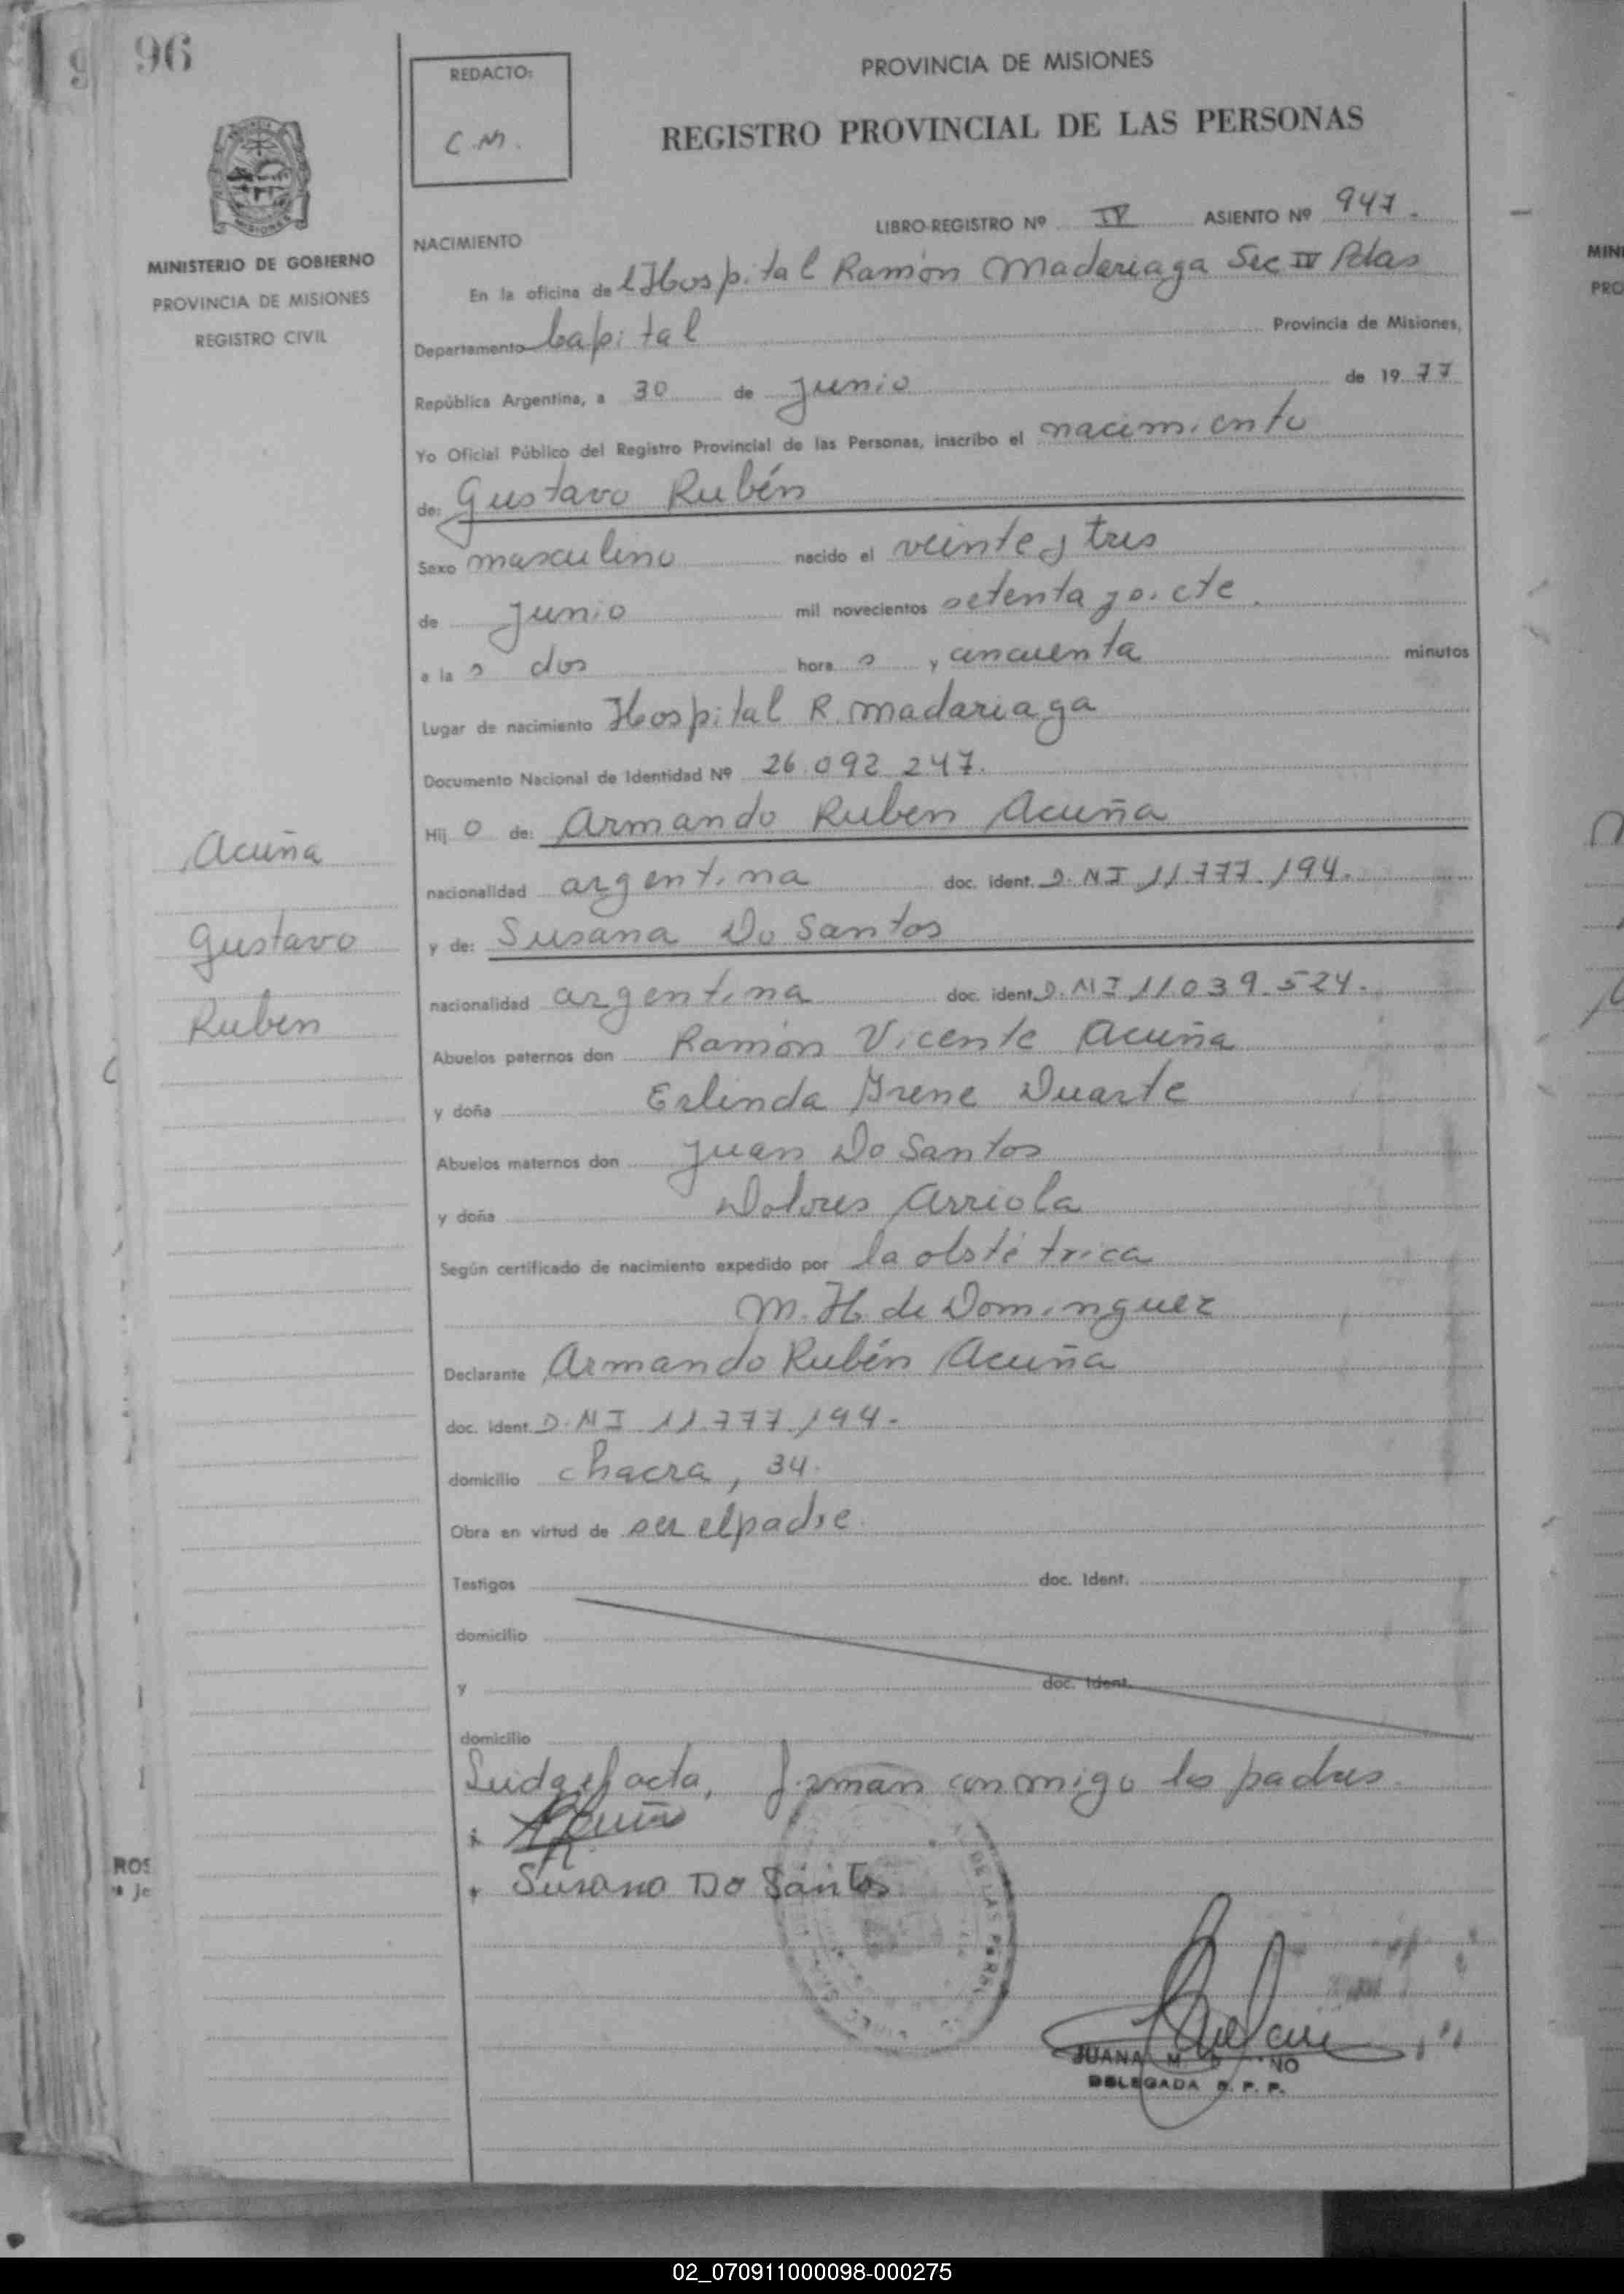 96
REDACTO:
C.M.
PROVINCIA DE MISIONES
REGISTRO PROVINCIAL DE LAS PERSONAS
MINISTERIO DE GOBIERNO
PROVINCIA DE MISIONES
REGISTRO CIVIL
LIBRO-REGISTRO Nº IV ASIENTO Nº 947.
NACIMIENTO
En la oficina del Hospital Ramón Madariaga Sec IV Pdas
Departamento Capital Provincia de Misiones,
República Argentina, a 30 de Junio de 1977
Yo Oficial Público del Registro Provincial de las Personas, inscribo el nacimiento
de: Gustavo Rubén
Sexo masculino nacido el veinte y tres
de Junio mil novecientos setenta y siete.
a la s dos hora s y cincuenta minutos
Lugar de nacimiento Hospital R. Madariaga
Documento Nacional de Identidad Nº 26.092.247.
Hij o de: Armando Ruben Acuña
nacionalidad argentina doc. ident. D.N.I 11.777.194.
y de: Susana Do Santos
nacionalidad argentina doc. ident. D.N.I 11.039.524.
Abuelos paternos don Ramón Vicente Acuña
y doña Erlinda Irene Duarte
Abuelos maternos don Juan Do Santos
y doña Dolores Arriola
Según certificado de nacimiento expedido por la obstétrica
M. H. de Dominguez
Declarante Armando Rubén Acuña
doc. ident. D.N.I 11.777.194.
domicilio chacra, 34.
Obra en virtud de ser el padre.
Testigos doc. Ident.
domicilio
y doc. Ident.
domicilio
Leida el acta, firman conmigo los padres.
Susana Do Santos
DE LAS PERS
JUANA M.
DELEGADA R. P. P.
Acuña
Gustavo
Ruben
MINI
PRO
ROS
02_070911000098-000275